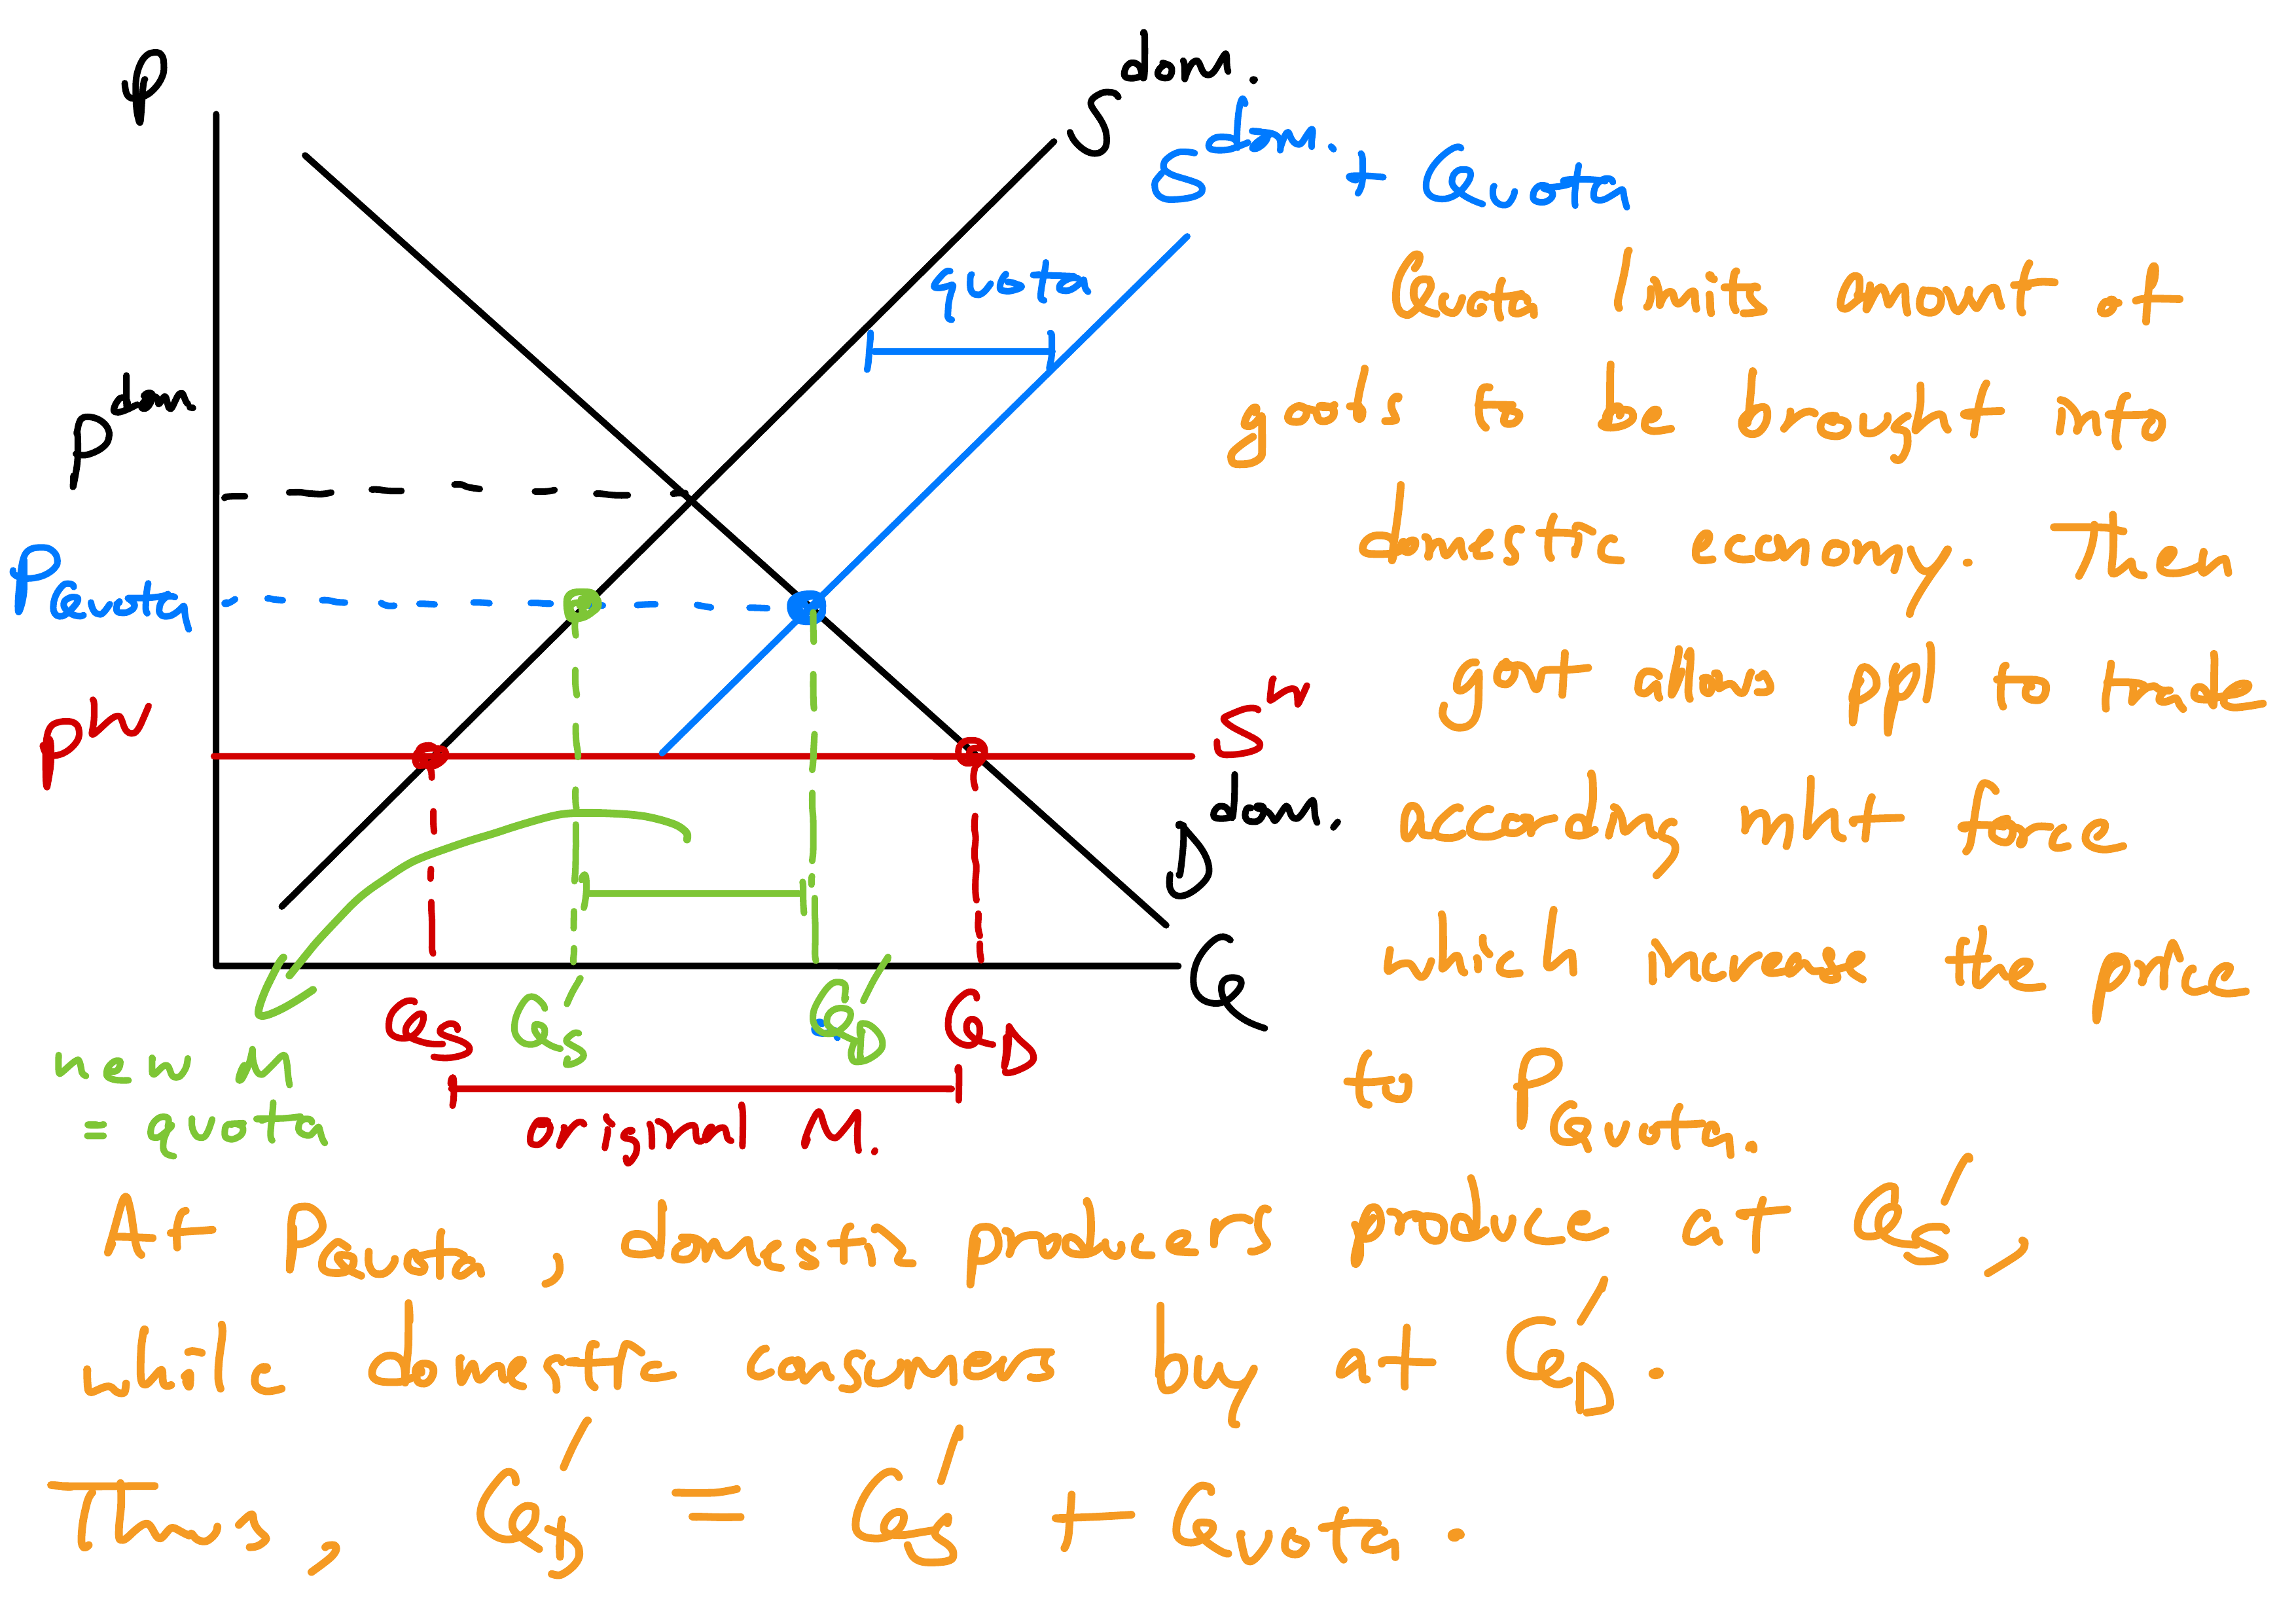 P
S^dom.
S^dom. + Quota
quota
P^dom.
P_Quota
P^W
S^W
D^dom.
Q
Q_S
Q_S'
Q_D'
Q_D
new M
= quota
original M.
Quota limits amount of
goods to be brought into
domestic economy. Then
govt allows ppl to trade
according mkt force
which increase the price
to P_Quota.
At P_Quota, domestic producers produce at Q_S',
while domestic consumers buy at Q_D'.
Thus, Q_D' = Q_S' + Quota.